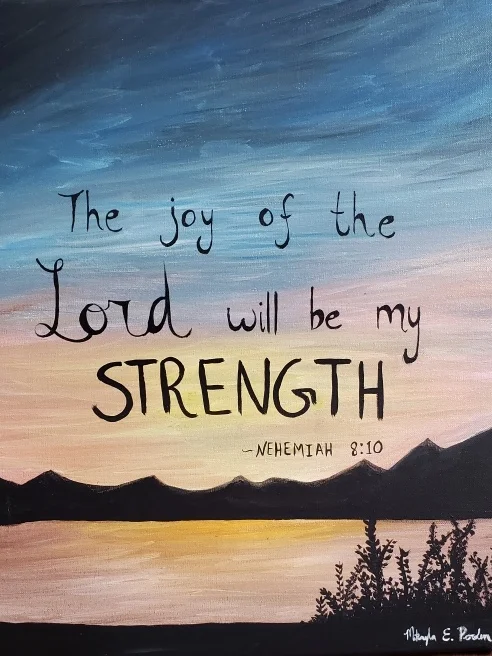 The joy of the
Lord will be my
STRENGTH
~NEHEMIAH 8:10
E.